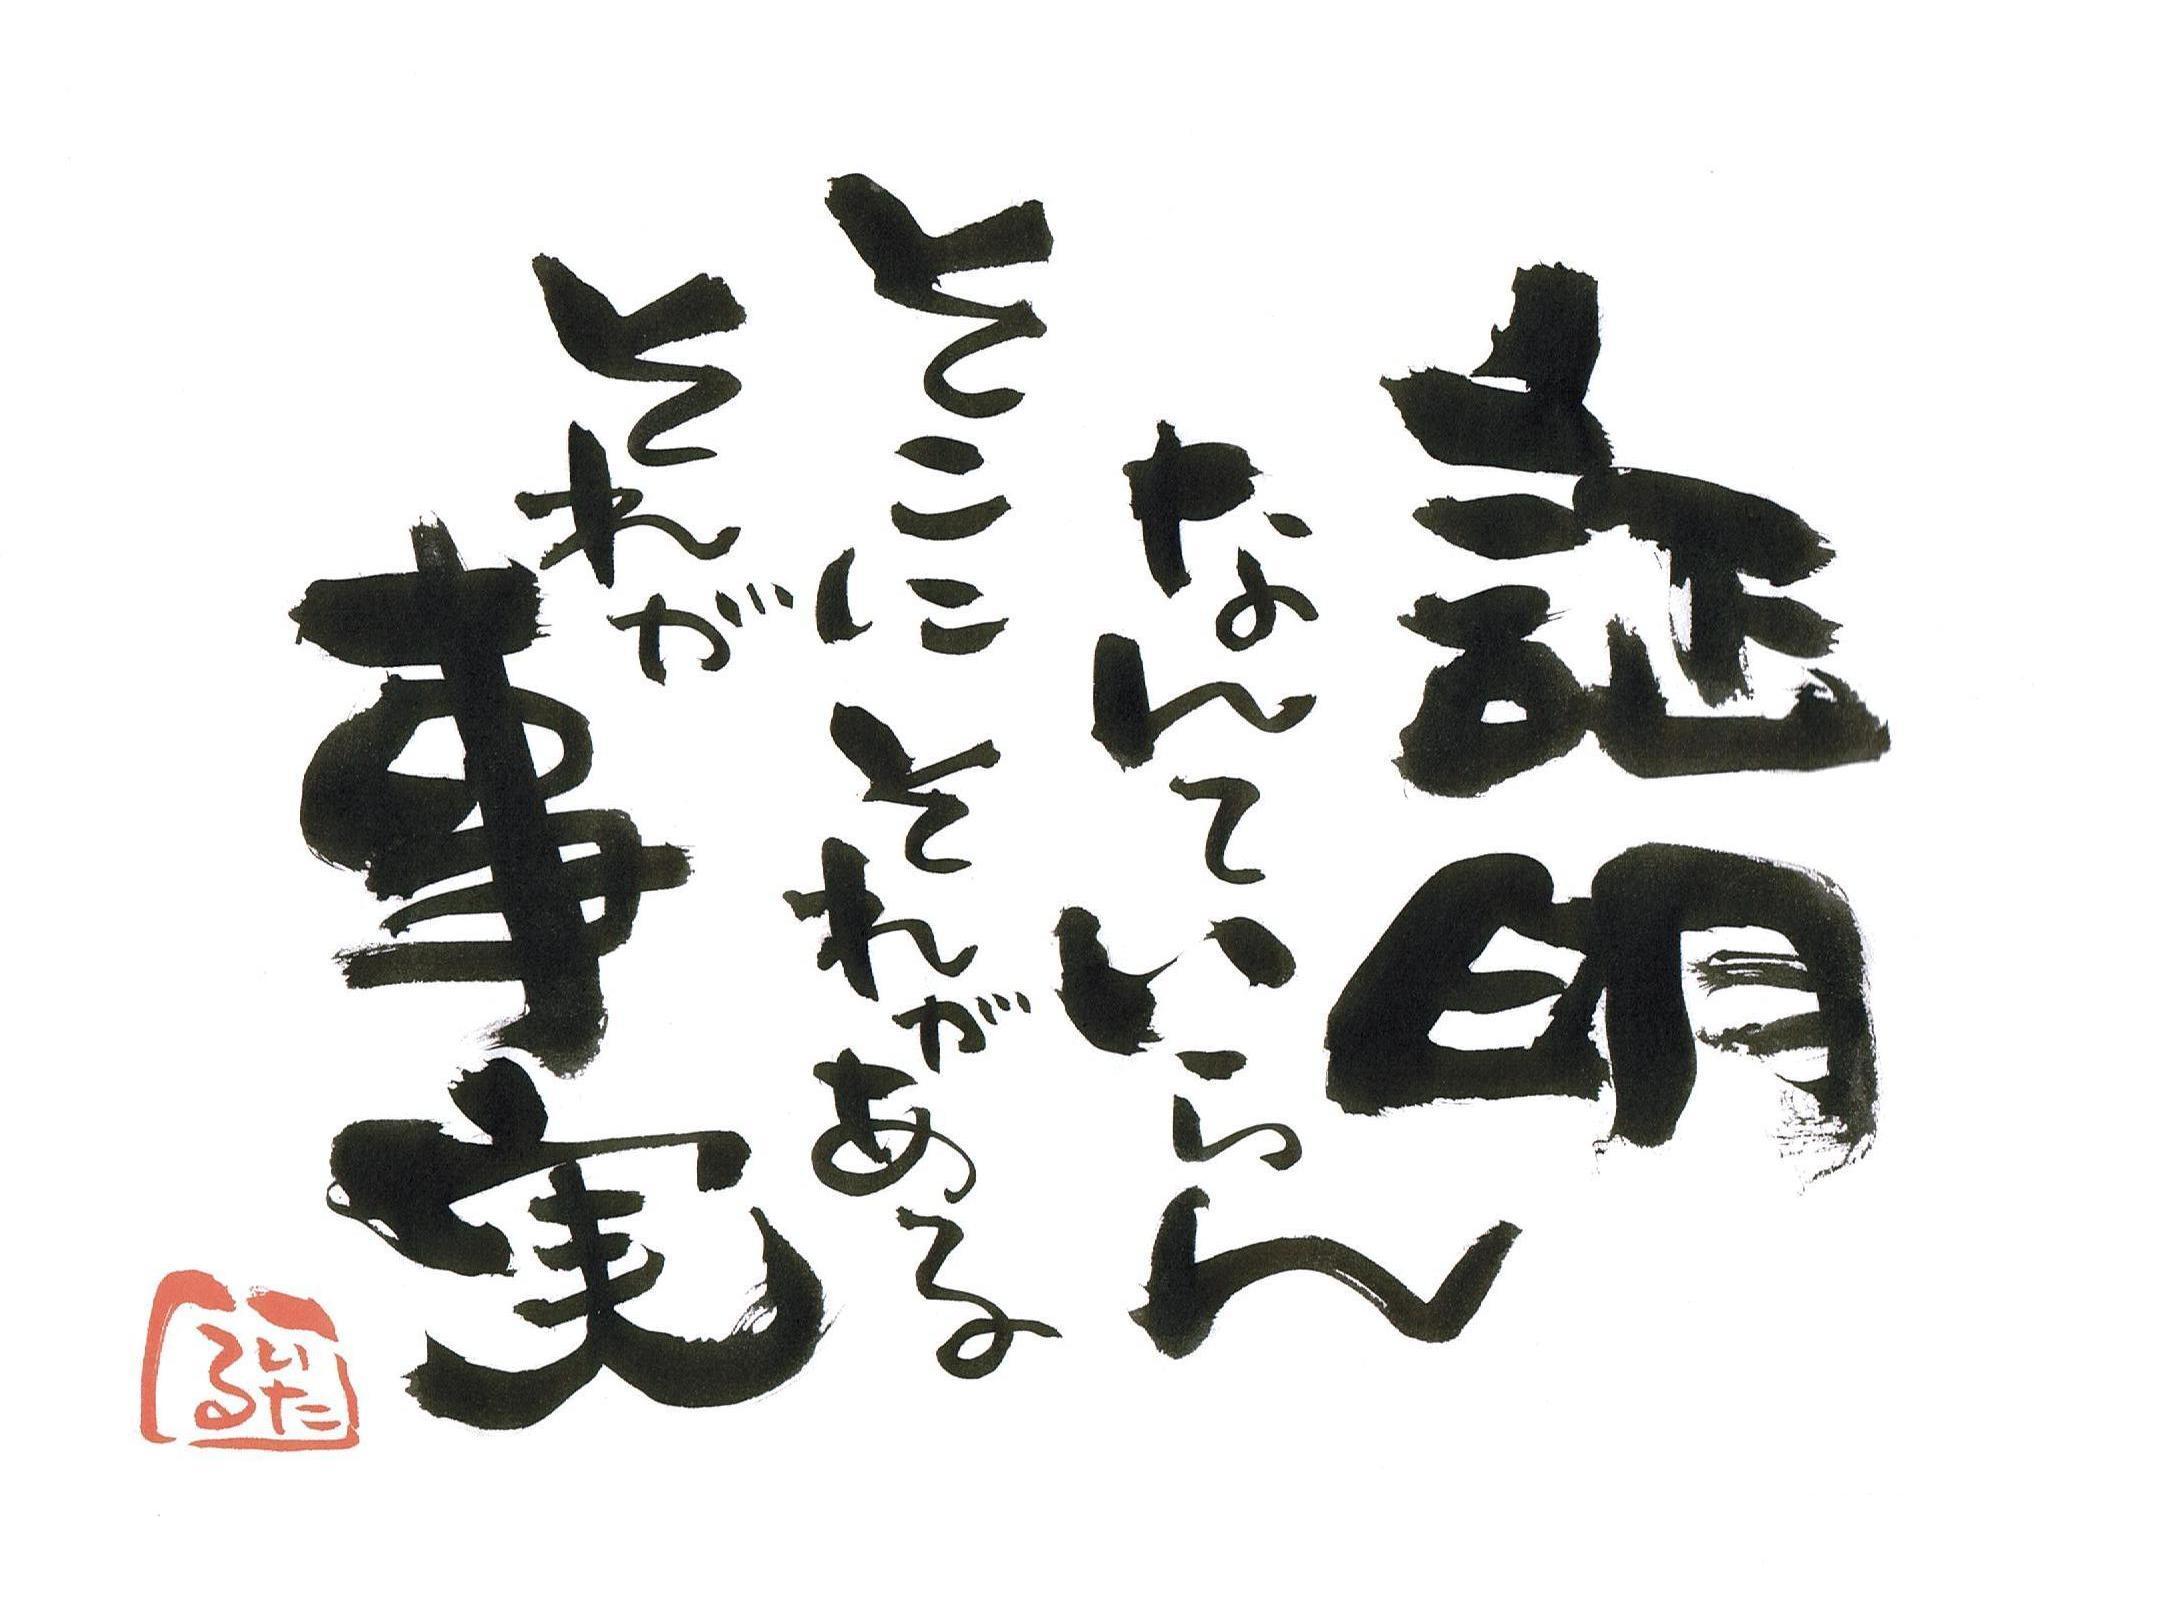 証明
なんていらん
そこにそれがある
それが
事実
いた
る